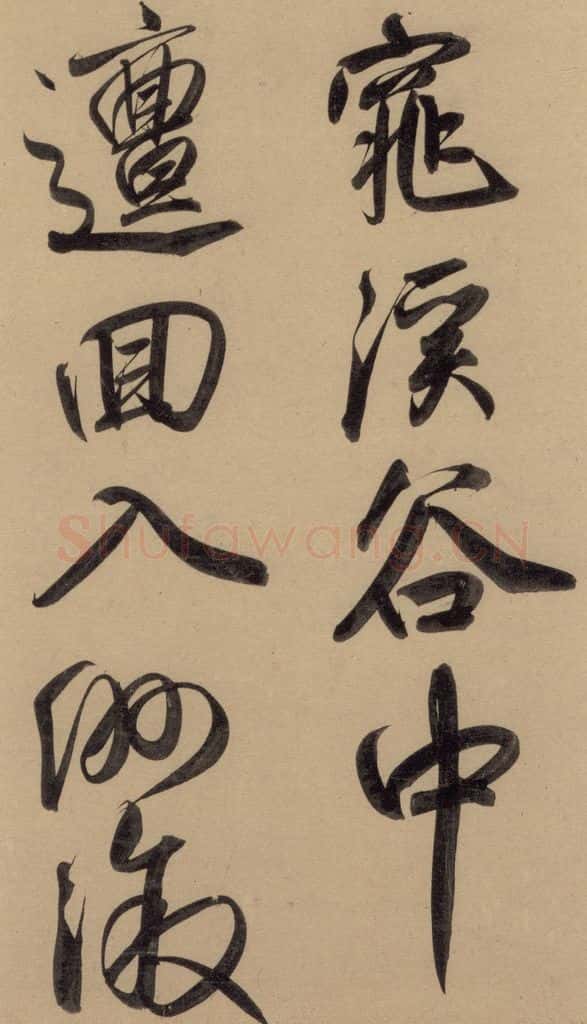 窕溪谷中
邅回入洲漵
Shufawang.CN